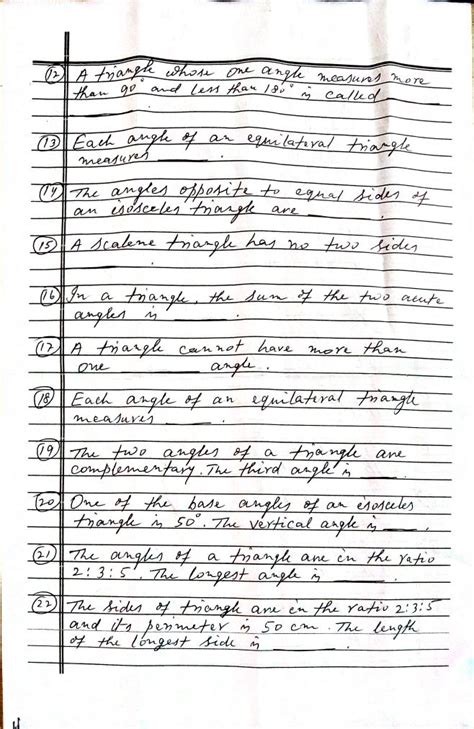 (12) A triangle whose one angle measures more
than 90° and less than 180° is called
(13) Each angle of an equilateral triangle
measures ______.
(14) The angles opposite to equal sides of
an isosceles triangle are ______
(15) A scalene triangle has no two sides
______.
(16) In a triangle, the sum of the two acute
angles is ______.
(17) A triangle cannot have more than
one ______ angle.
(18) Each angle of an equilateral triangle
measures ______.
(19) The two angles of a triangle are
complementary. The third angle is ______.
(20) One of the base angles of an isosceles
triangle is 50°. The vertical angle is ______.
(21) The angles of a triangle are in the ratio
2:3:5. The longest angle is ______.
(22) The sides of triangle are in the ratio 2:3:5
and its perimeter is 50 cm. The length
of the longest side is ______.